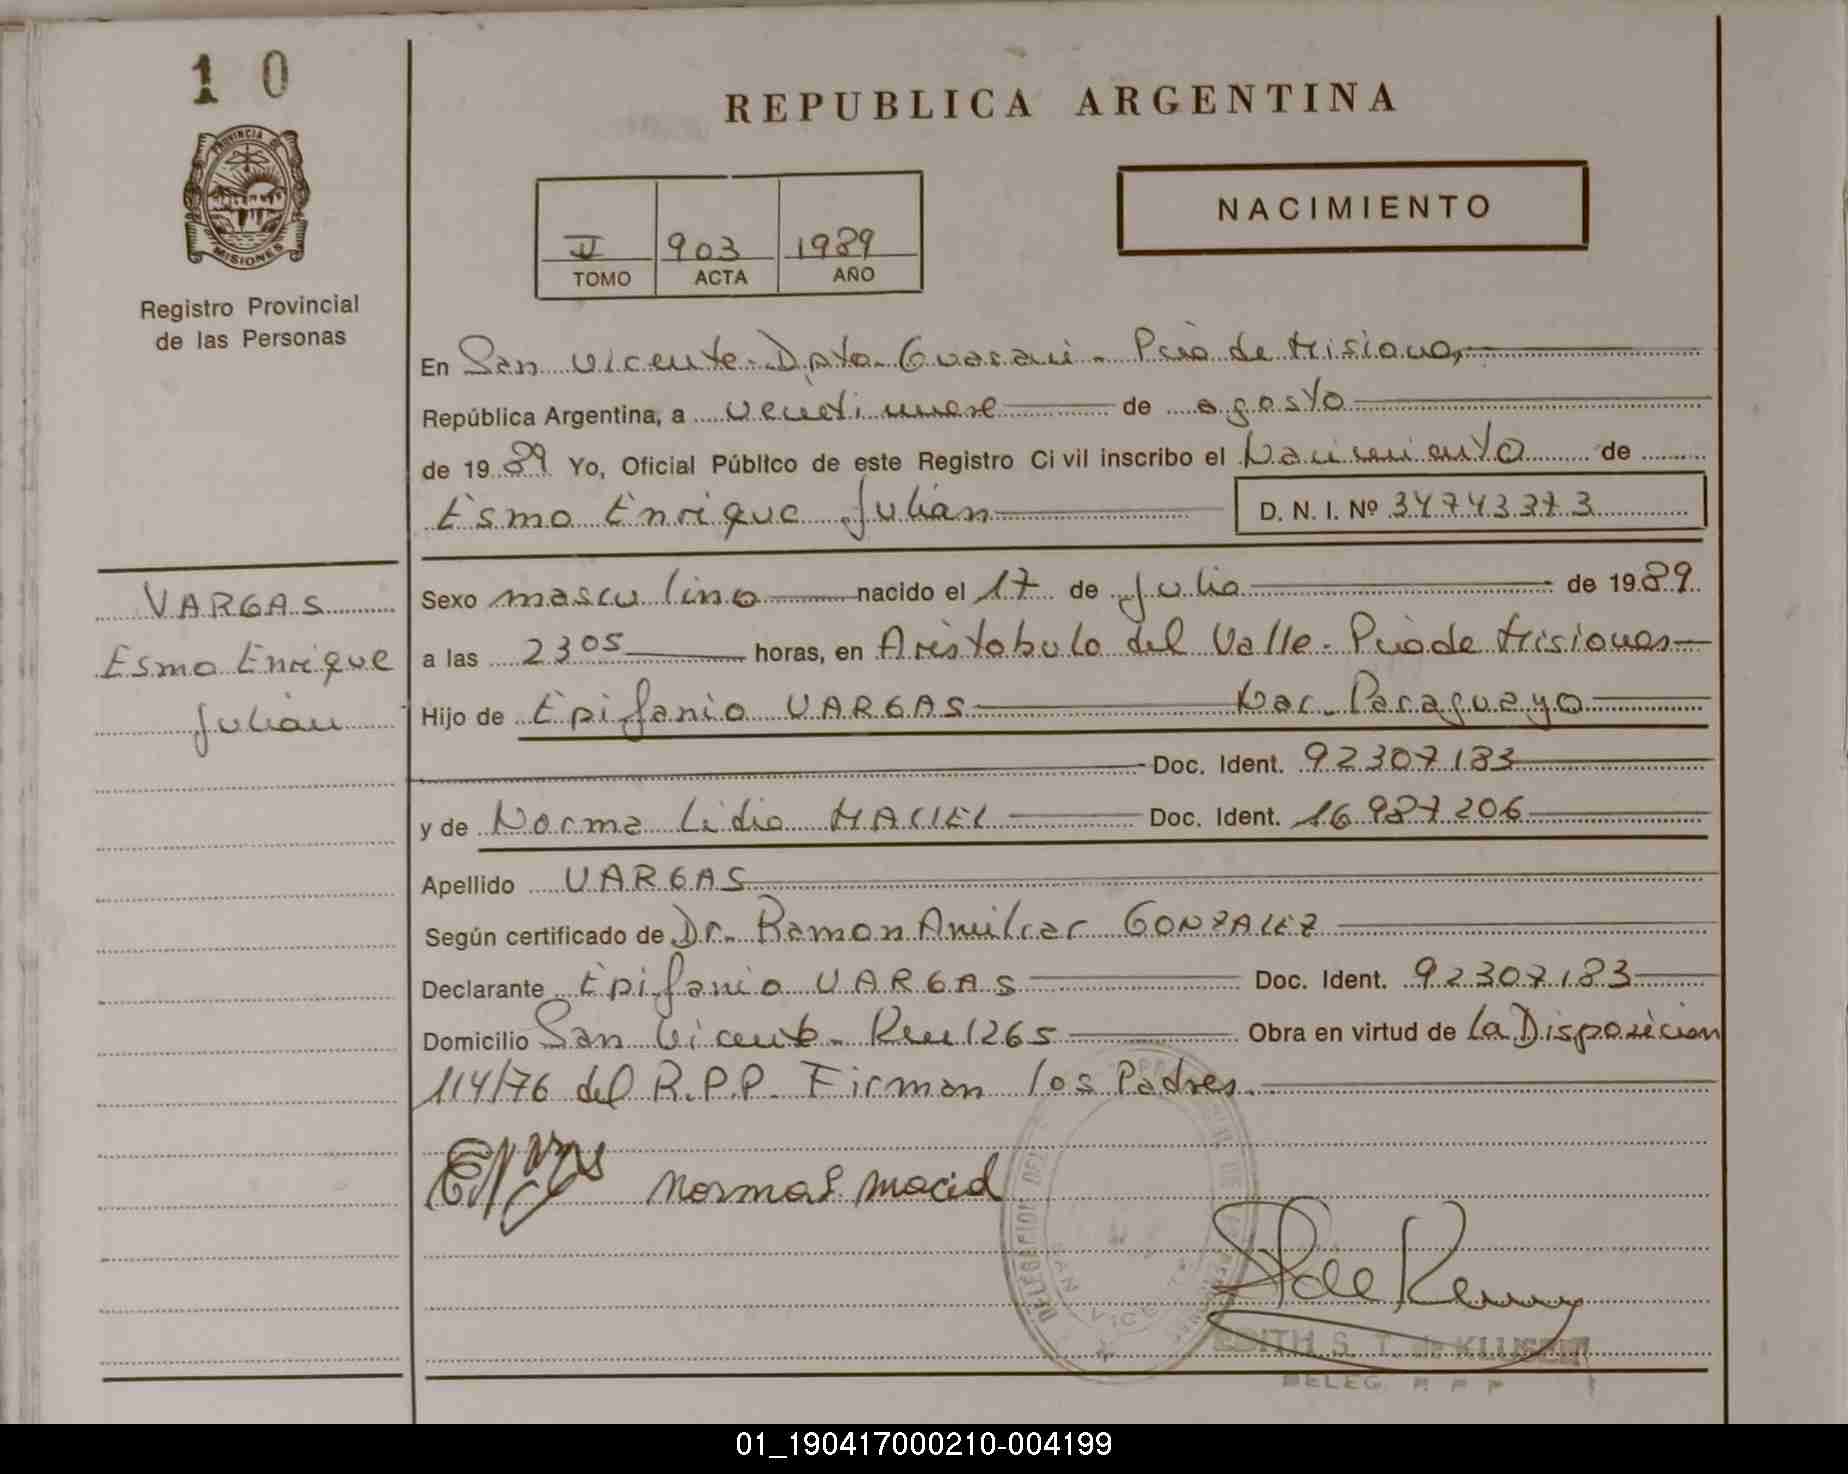 10
PROVINCIA DE
MISIONES
Registro Provincial
de las Personas
REPUBLICA ARGENTINA
NACIMIENTO
II 903 1989
TOMO ACTA AÑO
En San Vicente - Dpto. Guarani - Pcia de Misiones
República Argentina, a veinti nueve de agosto
de 1989 Yo, Oficial Público de este Registro Civil inscribo el Nacimiento de
Esmo Enrique Julián D. N. I. Nº 34743373
VARGAS
Esmo Enrique
Julián
Sexo masculino nacido el 17 de Julio de 1989
a las 2305 horas, en Aristobulo del Valle - Pcia de Misiones
Hijo de Epifanio VARGAS Nac. Paraguayo
Doc. Ident. 92307183
y de Norma Lidia MACIEL Doc. Ident. 16987206
Apellido VARGAS
Según certificado de Dr. Ramon Amilcar GONZALEZ
Declarante Epifanio VARGAS Doc. Ident. 92307183
Domicilio San Vicente - Km 1265 Obra en virtud de la Disposicion
114/76 del R.P.P. Firman los Padres.
DELEGACION DEL
SAN VICENTE
EDITH S. T. de
DELEG. R P P
01_190417000210-004199